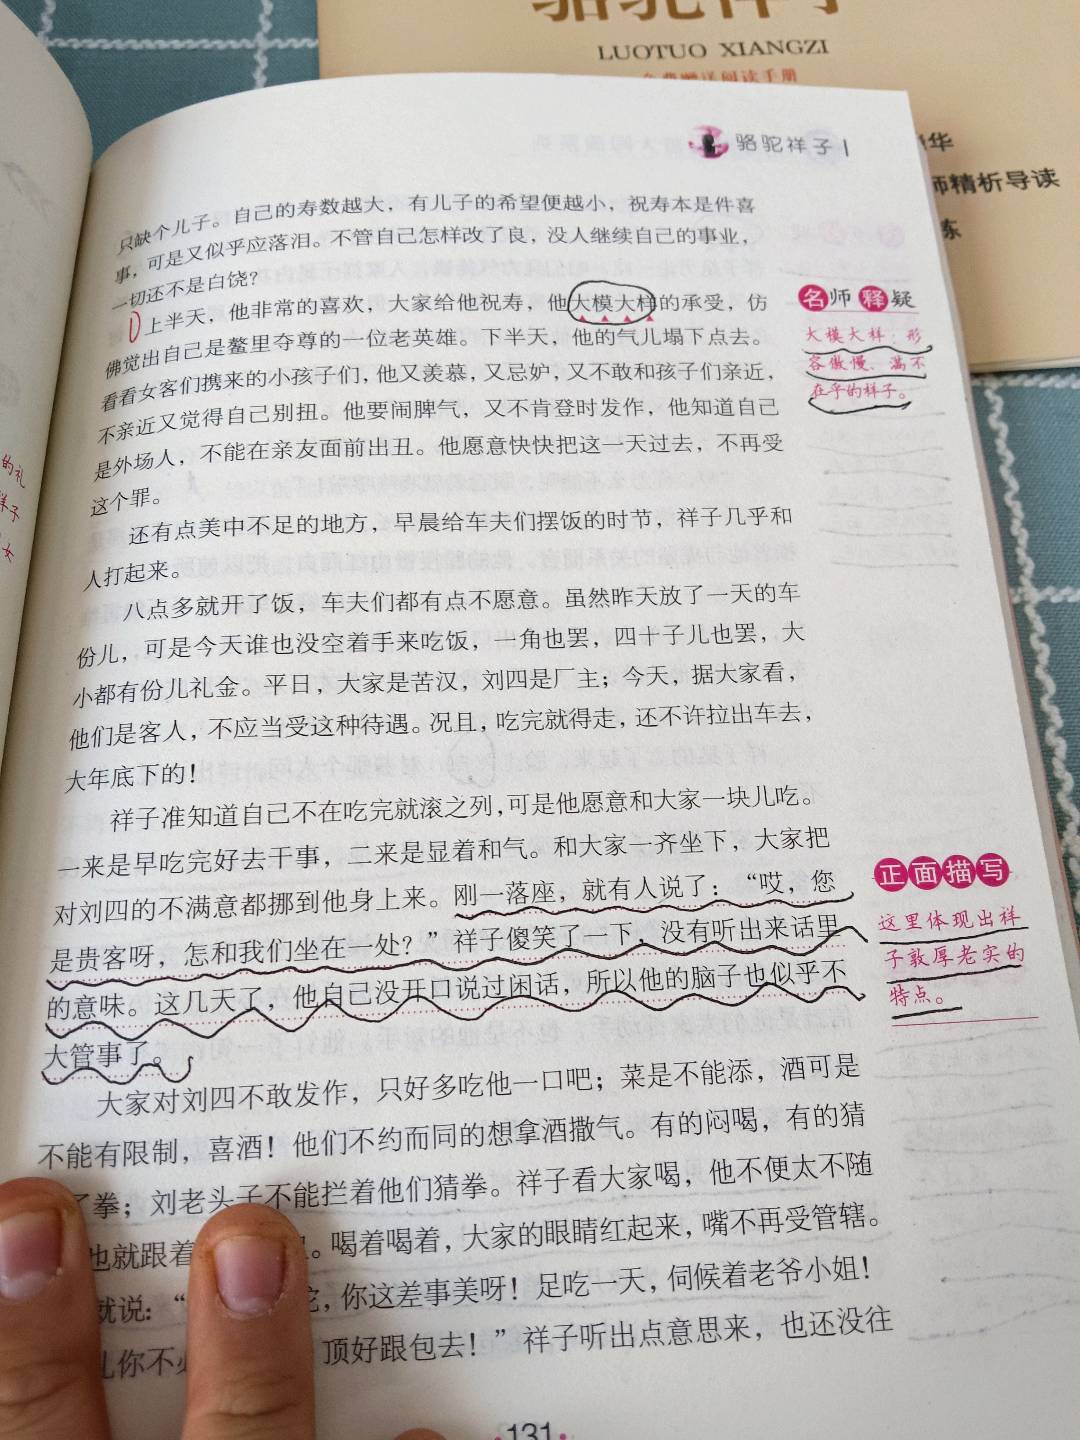 骆驼祥子
LUOTUO XIANGZI
免费赠送阅读手册
华
师精析导读
练
骆驼祥子
只缺个儿子。自己的寿数越大，有儿子的希望便越小，祝寿本是件喜
事，可是又似乎应落泪。不管自己怎样改了良，没人继续自己的事业，
一切还不是白饶？
上半天，他非常的喜欢，大家给他祝寿，他大模大样的承受，仿
佛觉出自己是鳌里夺尊的一位老英雄。下半天，他的气儿塌下点去。
看看女客们携来的小孩子们，他又羡慕，又忌妒，又不敢和孩子们亲近，
不亲近又觉得自己别扭。他要闹脾气，又不肯登时发作，他知道自己
是外场人，不能在亲友面前出丑。他愿意快快把这一天过去，不再受
这个罪。
还有点美中不足的地方，早晨给车夫们摆饭的时节，祥子几乎和
人打起来。
八点多就开了饭，车夫们都有点不愿意。虽然昨天放了一天的车
份儿，可是今天谁也没空着手来吃饭，一角也罢，四十子儿也罢，大
小都有份儿礼金。平日，大家是苦汉，刘四是厂主；今天，据大家看，
他们是客人，不应当受这种待遇。况且，吃完就得走，还不许拉出车去，
大年底下的！
祥子准知道自己不在吃完就滚之列，可是他愿意和大家一块儿吃。
一来是早吃完好去干事，二来是显着和气。和大家一齐坐下，大家把
对刘四的不满意都挪到他身上来。刚一落座，就有人说了：“哎，您
是贵客呀，怎和我们坐在一处？”祥子傻笑了一下，没有听出来话里
的意味。这几天了，他自己没开口说过闲话，所以他的脑子也似乎不
大管事了。
大家对刘四不敢发作，只好多吃他一口吧；菜是不能添，酒可是
不能有限制，喜酒！他们不约而同的想拿酒撒气。有的闷喝，有的猜
了拳；刘老头子不能拦着他们猜拳。祥子看大家喝，他不便太不随
也就跟着 。喝着喝着，大家的眼睛红起来，嘴不再受管辖。
就说：“ 驼，你这差事美呀！足吃一天，伺候着老爷小姐！
儿你不必 顶好跟包去！”祥子听出点意思来，也还没往
名师释疑
大模大样：形
容傲慢、满不
在乎的样子。
正面描写
这里体现出祥
子敦厚老实的
特点。
的礼
样子
大
131